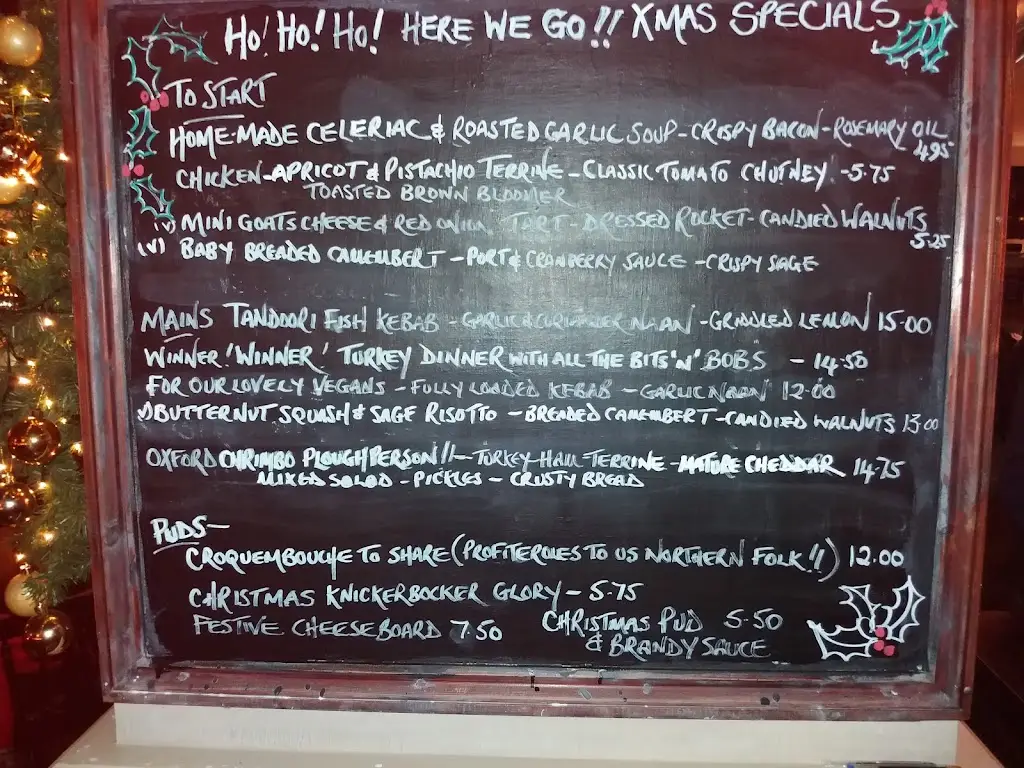 HO! HO! HO! HERE WE GO!! XMAS SPECIALS
TO START
HOME-MADE CELERIAC & ROASTED GARLIC SOUP - CRISPY BACON - ROSEMARY OIL
4.95
CHICKEN - APRICOT & PISTACHIO TERRINE - CLASSIC TOMATO CHUTNEY. - 5.75
TOASTED BROWN BLOOMER
(V) MINI GOATS CHEESE & RED ONION TART - DRESSED ROCKET - CANDIED WALNUTS
5.25
(V) BABY BREADED CAMEMBERT - PORT & CRANBERRY SAUCE - CRISPY SAGE
MAINS TANDOORI FISH KEBAB - GARLIC & CORIANDER NAAN - GRIDDLED LEMON 15.00
WINNER! WINNER! TURKEY DINNER WITH ALL THE BITS 'N' BOBS - 14.50
FOR OUR LOVELY VEGANS - FULLY LOADED KEBAB - GARLIC NAAN 12.00
BUTTERNUT SQUASH & SAGE RISOTTO - BREADED CAMEMBERT - CANDIED WALNUTS 13.00
OXFORD CHRIMBO PLOUGHPERSON!! - TURKEY HAM TERRINE - MATURE CHEDDAR 14.75
MIXED SALAD - PICKLES - CRUSTY BREAD
PUDS -
CROQUEMBOUCHE TO SHARE (PROFITEROLES TO US NORTHERN FOLK!!) 12.00
CHRISTMAS KNICKERBOCKER GLORY - 5.75
FESTIVE CHEESEBOARD 7.50 CHRISTMAS PUD 5.50
& BRANDY SAUCE